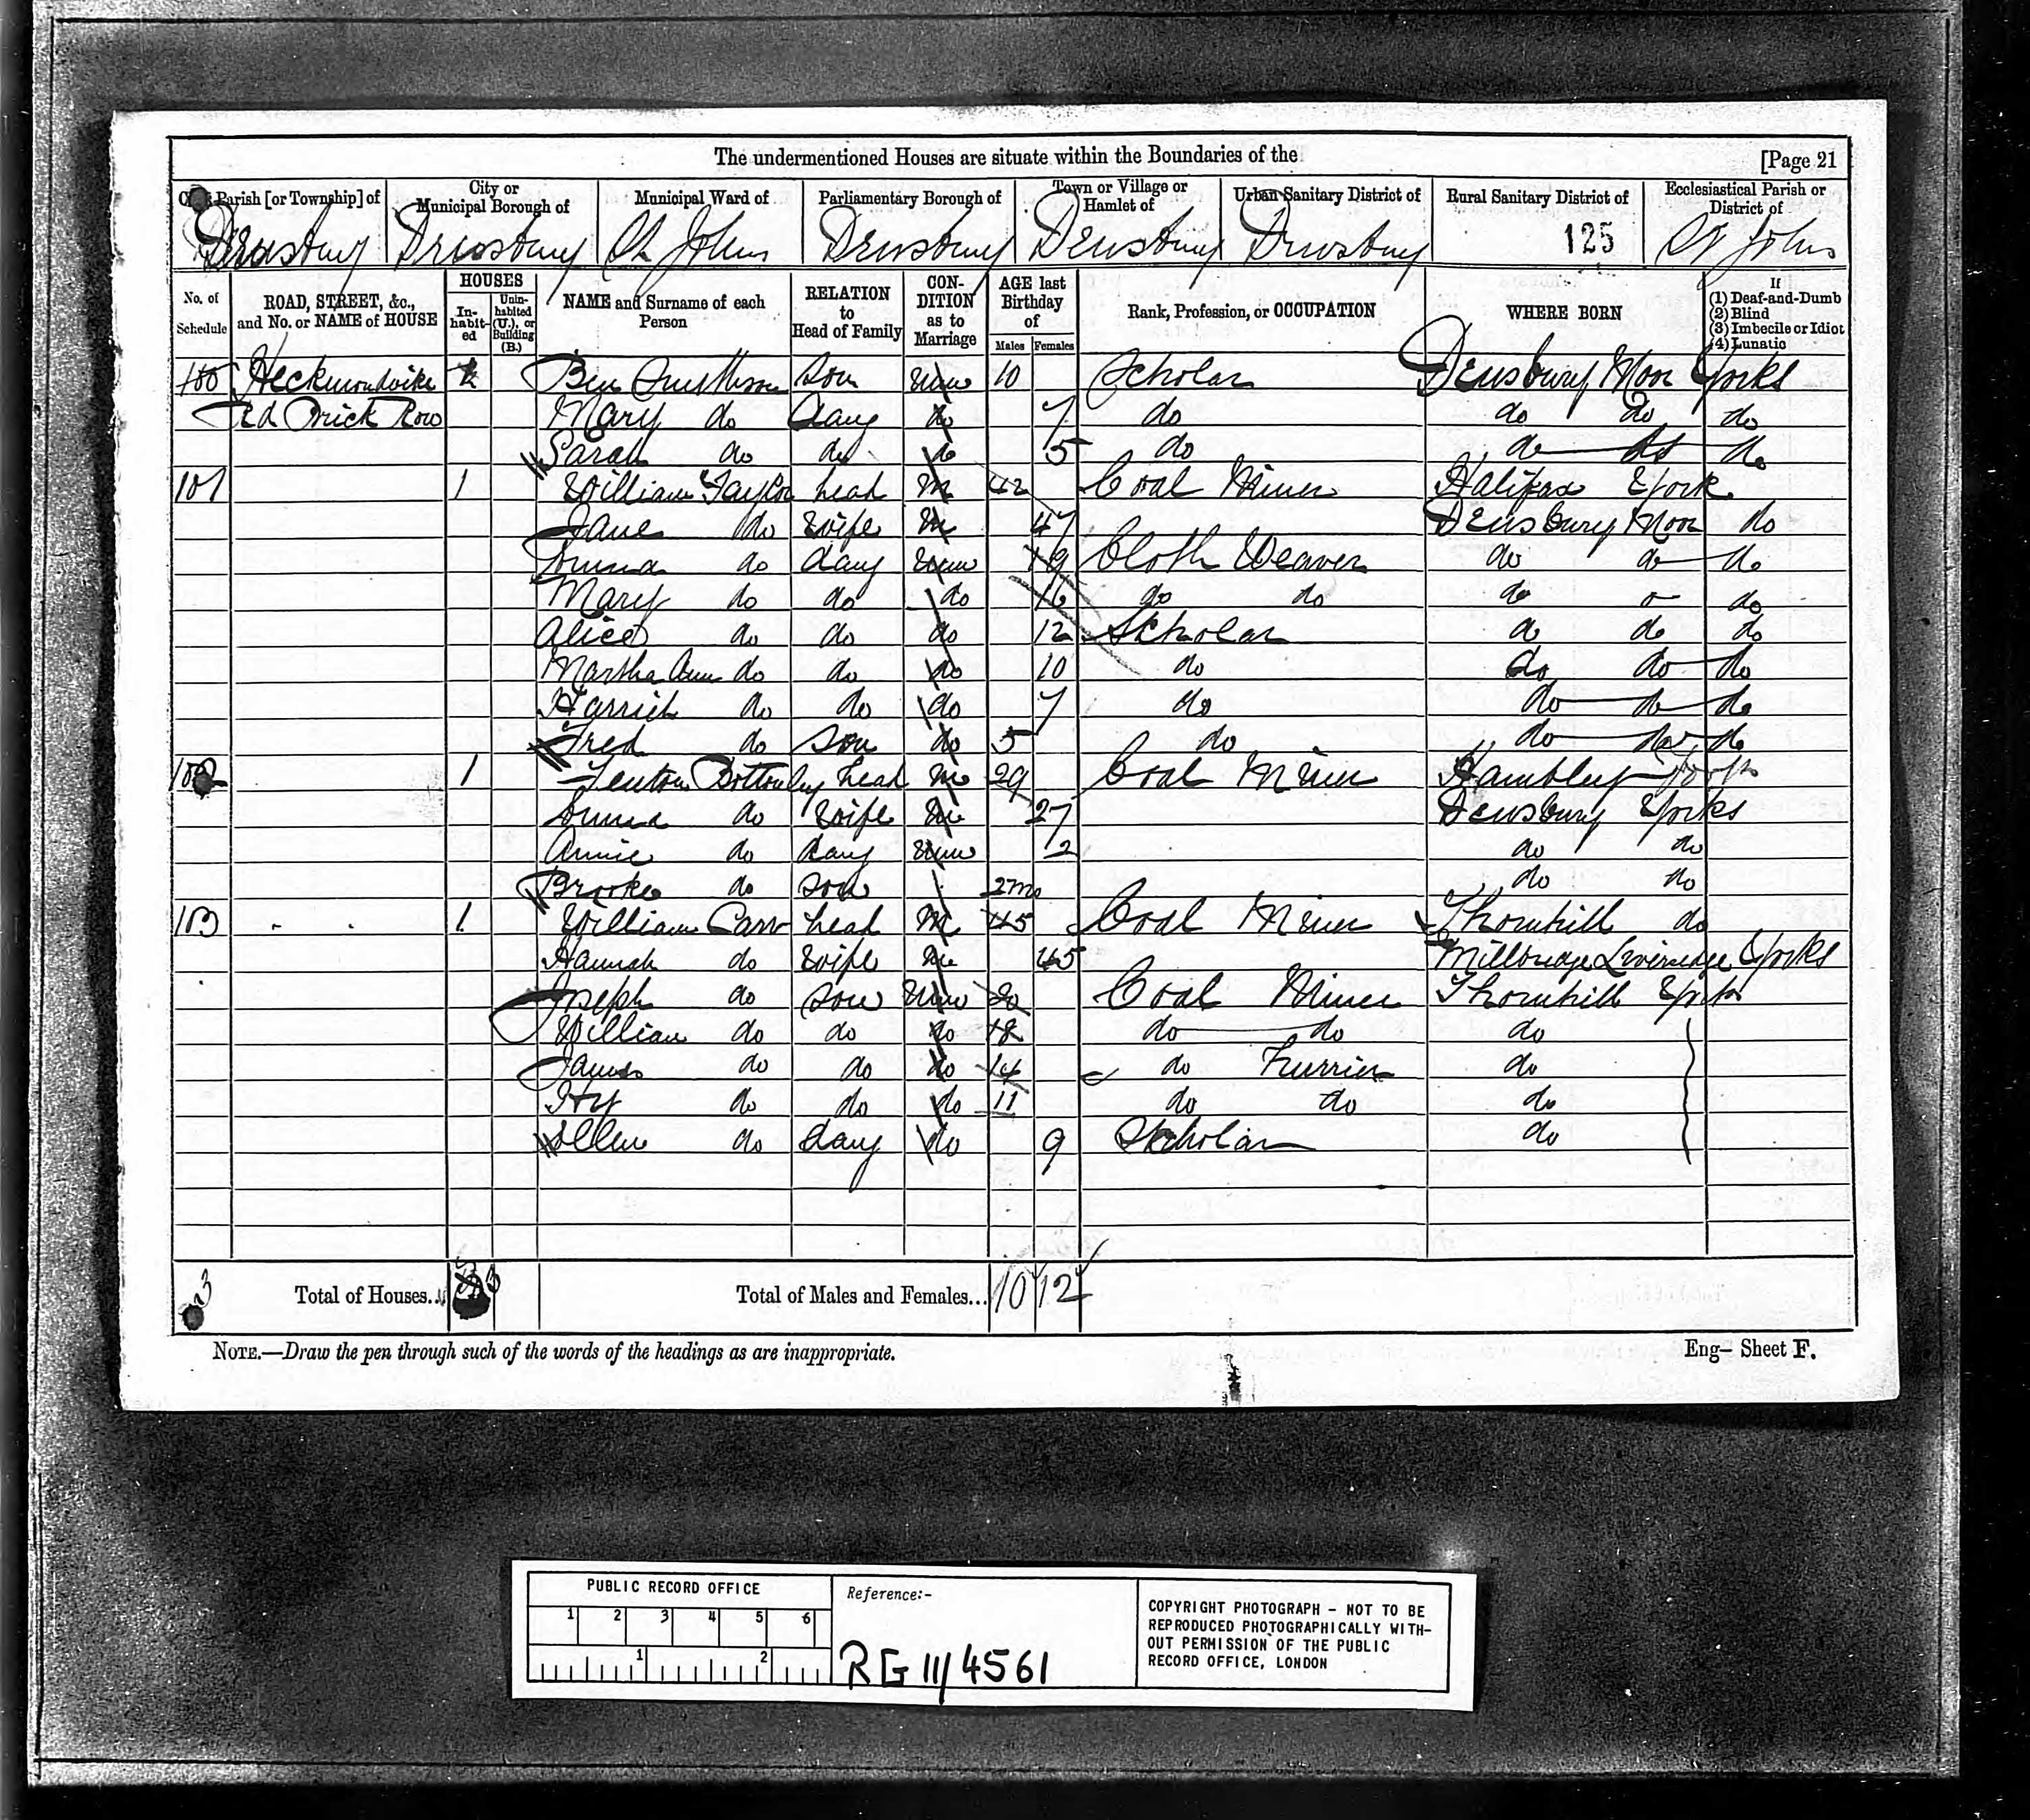 The undermentioned Houses are situate within the Boundaries of the [Page 21
Parish [or Township] of City or Municipal Borough of Municipal Ward of Parliamentary Borough of Town or Village or Hamlet of Urban Sanitary District of Rural Sanitary District of Ecclesiastical Parish or District of
Dewsbury Dewsbury St Johns Dewsbury Dewsbury Dewsbury 125 St Johns
No. of Schedule ROAD, STREET, &c., and No. or NAME of HOUSE HOUSES In-habit-ed Unin-habited (U.), or Building (B.) NAME and Surname of each Person RELATION to Head of Family CON-DITION as to Marriage AGE last Birthday of Males Females Rank, Profession, or OCCUPATION WHERE BORN If (1) Deaf-and-Dumb (2) Blind (3) Imbecile or Idiot (4) Lunatic
100 Heckmondwike Ben son Unm 10 Scholar Dewsbury Moor Yorks
Brick Row Mary do daug do 7 do do do do
Sarah do do do 5 do do do do
101 1 William Taylor head M 42 Coal Miner Halifax York
Jane do wife M 47 Dewsbury Moor do
Emma do daug Unm 19 Cloth Weaver do do do
Mary do do do 16 do do do do do
Alice do do do 12 Scholar do do do
Martha Ann do do do 10 do do do do
Harriet do do do 7 do do do do
Fred do son do 5 do do do do
102 1 Fenton Bottomley head M 29 Coal Miner
Emma do wife M 27 Dewsbury Yorks
Annie do daug Unm 2 do do
Brooke do son 2mo do do
103 - . 1 William Carr head M 45 Coal Miner Thornhill do
Hannah do wife M 45 Millbridge Yorks
Joseph do son Unm 20 Coal Miner Thornhill Yorks
William do do do 18 do do do
James do do do 14 do Hurrier do
Hy do do do 11 do do do
Ellen do daug do 9 Scholar do
3 Total of Houses... 3 Total of Males and Females... 10 12
NOTE.—Draw the pen through such of the words of the headings as are inappropriate. Eng— Sheet F.
PUBLIC RECORD OFFICE
1 2 3 4 5 6
1 2
Reference:-
RG 11/4561
COPYRIGHT PHOTOGRAPH - NOT TO BE
REPRODUCED PHOTOGRAPHICALLY WITH-
OUT PERMISSION OF THE PUBLIC
RECORD OFFICE, LONDON